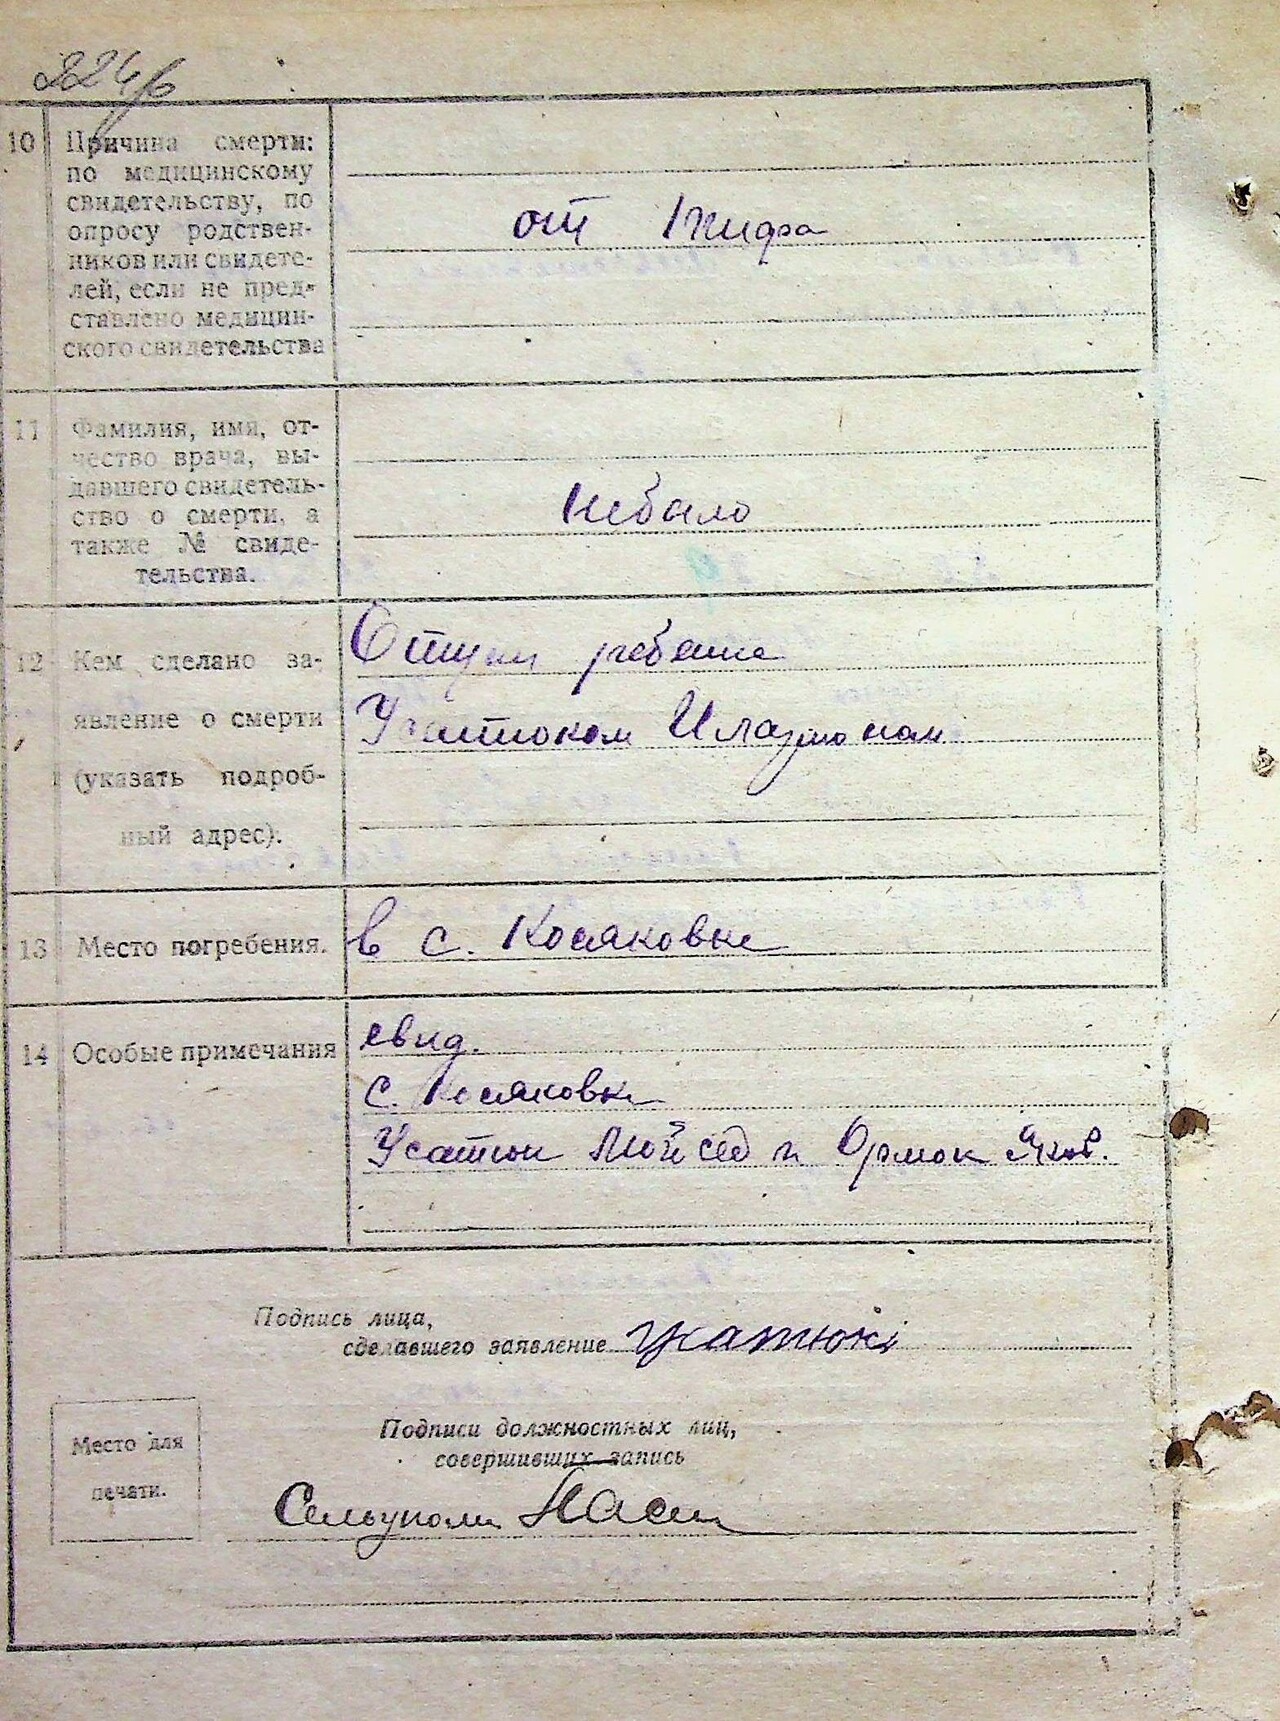 10 Причина смерти:
по медицинскому
свидетельству, по
опросу родствен-
ников или свидете-
лей, если не пред-
ставлено медицин-
ского свидетельства
от Тифа
11 Фамилия, имя, от-
чество врача, вы-
давшего свидетель-
ство о смерти, а
также № свиде-
тельства.
небыло
12 Кем сделано за-
явление о смерти
(указать подроб-
ный адрес).
Отцом ребенка
Усатюком
13 Место погребения.
в с. Косяковке
14 Особые примечания
свид.
с. Косяковки
Усатюк Мойсей и Ормок Яков.
Подпись лица,
сделавшего заявление Усатюк
Место для
печати.
Подписи должностных лиц,
совершивших запись